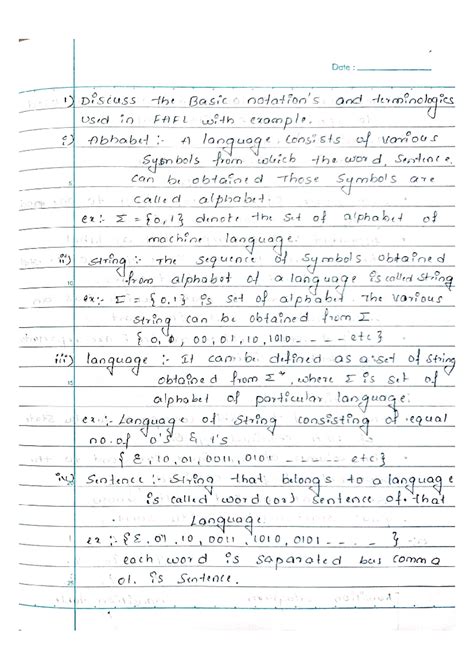 Date :
1) Discuss the Basic notation's and terminologies
used in FAFL with example.
i) Abhabet :- A language consists of various
Symbols from which the word, Sentence.
can be obtained Those Symbols are
called alphabet.
ex:- Σ = {0,1} denote the set of alphabet of
machine language.
ii) String :- The sequence of Symbols obtained
from alphabet of a language is called string
ex:- Σ = {0,1} is set of alphabet The various
string can be obtained from Σ
00, 01, 10, 1010 - - - - - etc}
iii) language :- It can be defined as a set of string
obtained from Σ*, where Σ is set of
alphabet of particular language.
ex:- Language of String consisting of equal
no. of 0's & 1's
{ Ɛ, 10, 01, 0011, 0101 - - - - - etc}
iv) Sentence :- String that belongs to a language
is called word (or) sentence of that
Language.
ex :- {Ɛ, 01, 10, 0011, 1010, 0101 - - - - }
each word is saparated bus comma
01. is Sentence.